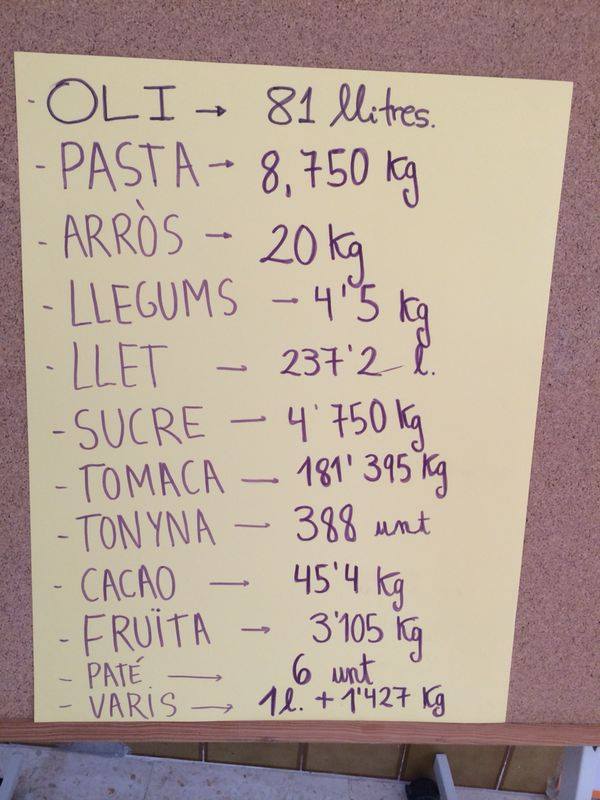 - OLI → 81 llitres.
- PASTA → 8,750 Kg
- ARRÒS → 20 Kg
- LLEGUMS → 4'5 Kg
- LLET → 237'2 l.
- SUCRE → 4'750 Kg
- TOMACA → 181'395 Kg
- TONYNA → 388 unt
- CACAO → 45'4 Kg
- FRUÏTA → 3'105 Kg
- PATÉ → 6 unt
- VARIS → 1l. + 1'427 Kg